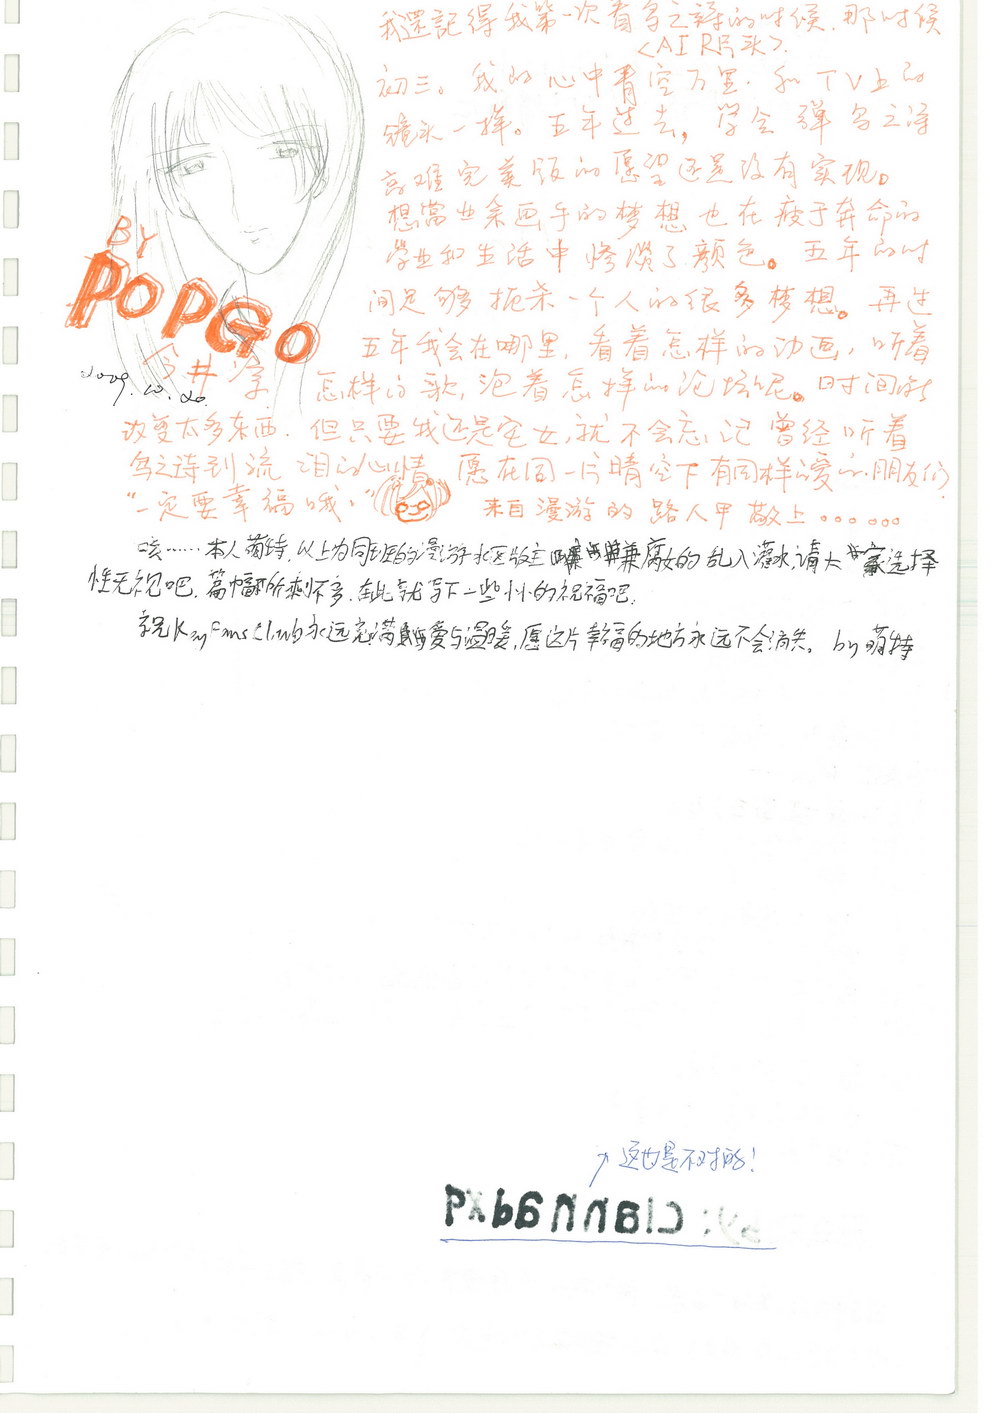 我還記得我第一次看鸟之诗的时候.那时候
<AIR片头>.
初三。我的心中青空万里.和TV上的
镜头一样。五年过去，学会弹鸟之诗
高难完美版的愿望还是没有实现。
想當业余画手的梦想也在疲于奔命的
学业和生活中惨淡了颜色。五年的时
间足够扼杀一个人的很多梦想。再过
五年我会在哪里，看着怎样的动画，听着
怎样的歌，泡着怎样的论坛呢。时间能
改变太多东西.但只要我还是宅女,就不会忘记曾经听着
鸟之诗到流泪的心情 愿在同一片晴空下有同样爱的朋友们
“一定要幸福哦.” 来自漫游的路人甲敬上。。。。。。
BY
POPGO
今井
2009.10.20.
咳……本人萌特,以上为同班的漫游水区版主兼腐女的乱入灌水,请大家选择
性无视吧.篇幅所剩不多.在此就写下一些小小的祝福吧.
祝KeyFansClub永远充满爱与温暖,愿这片幸福的地方永远不会消失。by萌特
这也是不对的!
by: clannadxq